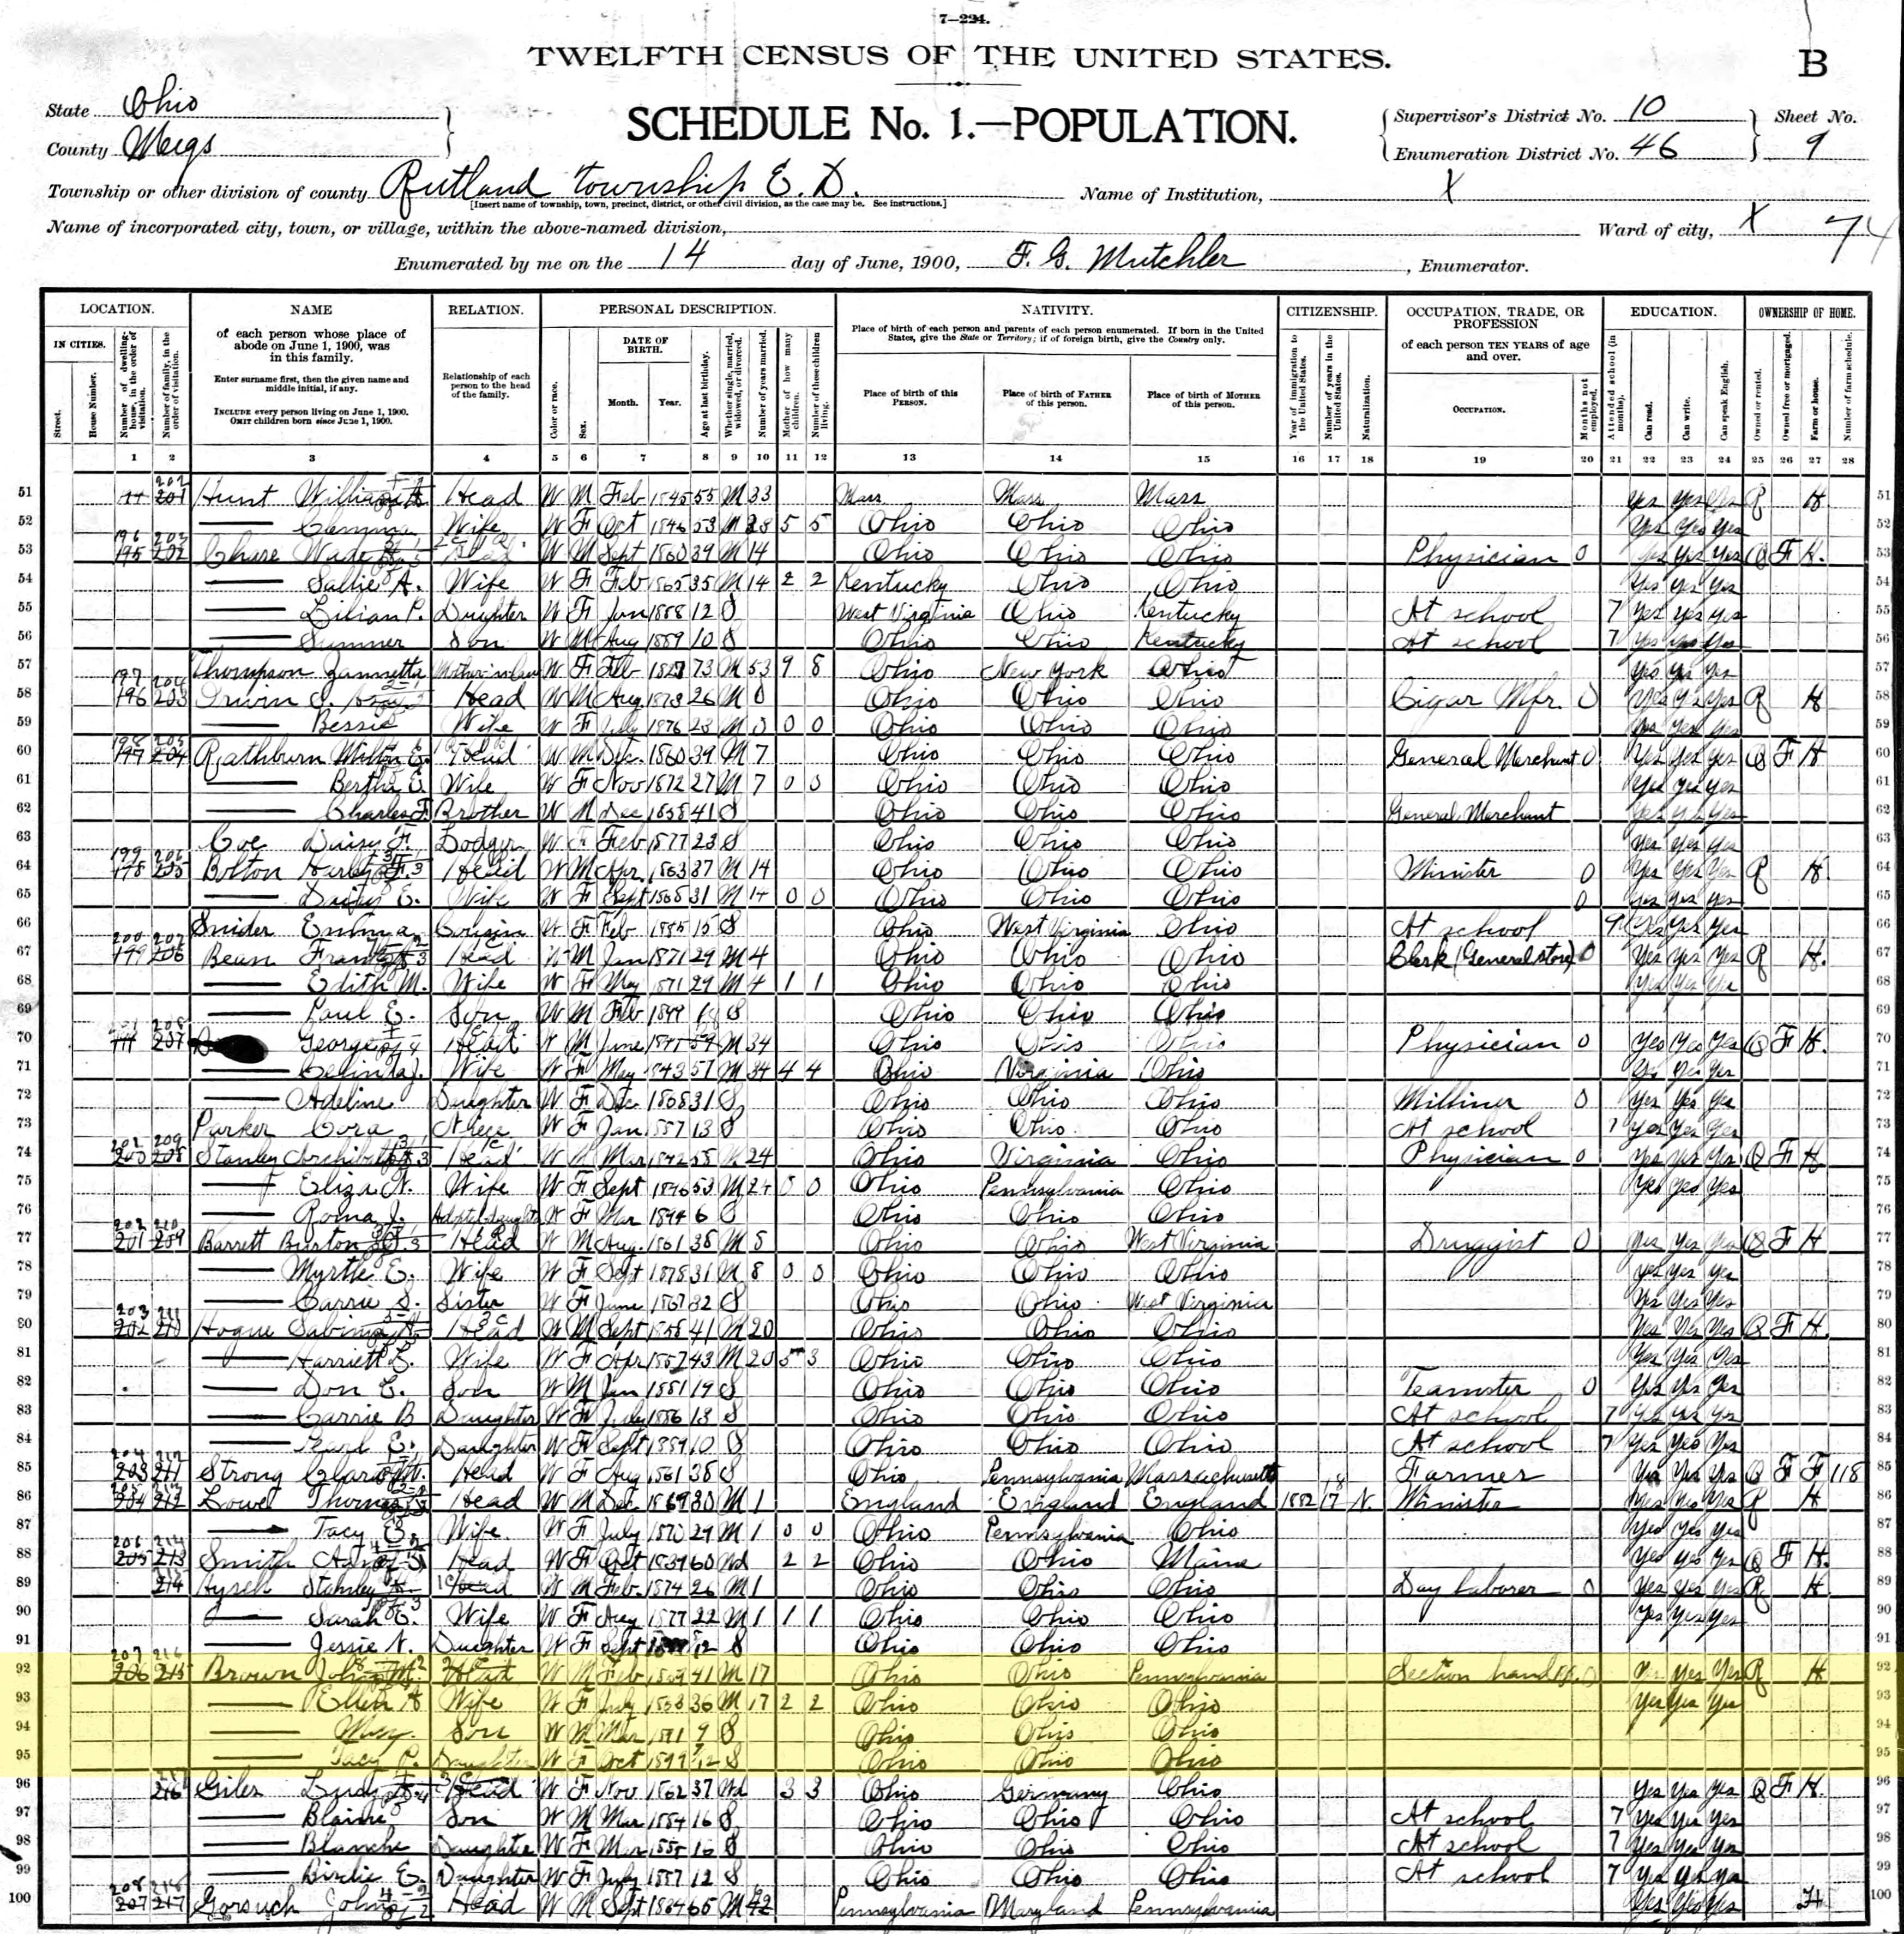 7—224.
TWELFTH CENSUS OF THE UNITED STATES.
B
State Ohio
County Meigs
SCHEDULE No. 1.—POPULATION.
Supervisor's District No. 10
Enumeration District No. 46
Sheet No.
9
Township or other division of county Rutland township E. D.
[Insert name of township, town, precinct, district, or other civil division, as the case may be. See instructions.]
Name of Institution, X
Name of incorporated city, town, or village, within the above-named division,
Ward of city, X
74
Enumerated by me on the 14 day of June, 1900, F. G. Mutchler, Enumerator.
LOCATION. NAME RELATION. PERSONAL DESCRIPTION. NATIVITY. CITIZENSHIP. OCCUPATION, TRADE, OR PROFESSION EDUCATION. OWNERSHIP OF HOME.
IN CITIES.
Street.
House Number.
Number of dwelling-house, in the order of visitation.
Number of family, in the order of visitation.
of each person whose place of abode on June 1, 1900, was in this family.
Enter surname first, then the given name and middle initial, if any.
INCLUDE every person living on June 1, 1900.
OMIT children born since June 1, 1900.
Relationship of each person to the head of the family.
Color or race.
Sex.
DATE OF BIRTH.
Month. Year.
Age at last birthday.
Whether single, married, widowed, or divorced.
Number of years married.
Mother of how many children.
Number of these children living.
Place of birth of each person and parents of each person enumerated. If born in the United States, give the State or Territory; if of foreign birth, give the Country only.
Place of birth of this PERSON.
Place of birth of FATHER of this person.
Place of birth of MOTHER of this person.
Year of immigration to the United States.
Number of years in the United States.
Naturalization.
of each person TEN YEARS of age and over.
OCCUPATION.
Months not employed.
Attended school (in months).
Can read.
Can write.
Can speak English.
Owned or rented.
Owned free or mortgaged.
Farm or house.
Number of farm schedule.
1 2 3 4 5 6 7 8 9 10 11 12 13 14 15 16 17 18 19 20 21 22 23 24 25 26 27 28
51 Hunt Head W M Feb 1845 55 M 33 Mass Mass Mass Yes Yes R H 51
52 Wife W F Oct 1846 53 M 5 5 Ohio Ohio Ohio Yes Yes Yes 52
53 Chase W M Sept 1860 39 M 14 Ohio Ohio Ohio Physician 0 Yes Yes Yes O F H. 53
54 Sallie A. Wife W F Feb 1865 35 M 14 2 2 Kentucky Ohio Ohio Yes Yes Yes 54
55 Lilian P. Daughter W F Jan 1888 12 S West Virginia Ohio Kentucky At school 7 Yes Yes Yes 55
56 Sumner Son W M Aug 1889 10 S Ohio Ohio Kentucky At school 7 Yes Yes Yes 56
57 Thompson Mother in law W F Feb 1827 73 M 53 9 8 Ohio New York Ohio Yes Yes Yes 57
58 Head W M Aug 1873 26 M 0 Ohio Ohio Ohio Cigar Mfr. 0 Yes Yes Yes R H 58
59 Bessie Wife W F July 1876 23 M 0 0 0 Ohio Ohio Ohio Yes Yes 59
60 Rathburn Head W M Dec. 1860 39 M 7 Ohio Ohio Ohio General Merchant 0 Yes Yes Yes O F H 60
61 Bertha E. Wife W F Nov 1872 27 M 7 0 0 Ohio Ohio Ohio Yes Yes Yes 61
62 Charles F. Brother W M Dec 1858 41 S Ohio Ohio Ohio General Merchant Yes Yes Yes 62
63 Coe Daisy F. Lodger W F Feb 1877 23 S Ohio Ohio Ohio Yes Yes Yes 63
64 Bolton Head W M Apr. 1863 37 M 14 Ohio Ohio Ohio Minister 0 Yes Yes Yes R H. 64
65 E. Wife W F Sept 1868 31 M 14 0 0 Ohio Ohio Ohio 0 Yes Yes Yes 65
66 Snider Emma Cousin W F Feb 1885 15 S Ohio West Virginia Ohio At school Yes Yes Yes 66
67 Bean Frank Head W M Jan 1871 29 M 4 Ohio Ohio Ohio Clerk (General store) 0 Yes Yes Yes R H. 67
68 Edith M. Wife W F May 1871 29 M 4 1 1 Ohio Ohio Ohio Yes Yes Yes 68
69 Paul E. Son W M Feb 1899 S Ohio Ohio Ohio 69
70 George Head W M June 59 M 34 Ohio Ohio Ohio Physician 0 Yes Yes Yes O F H. 70
71 Wife W F May 1843 57 M 34 4 4 Ohio Virginia Ohio Yes Yes Yes 71
72 Adeline Daughter W F Dec 1868 31 S Ohio Ohio Ohio Milliner 0 Yes Yes Yes 72
73 Parker Cora Niece W F Jan 1887 13 S Ohio Ohio Ohio At school 7 Yes Yes Yes 73
74 Stanley Head W M Mar 1842 58 M 24 Ohio Virginia Ohio Physician 0 Yes Yes Yes O F H 74
75 Eliza N. Wife W F Sept 1846 53 M 24 0 0 Ohio Pennsylvania Ohio Yes Yes Yes 75
76 Roma J. Adopted daughter W F Mar 1894 6 S Ohio Ohio Ohio 76
77 Barrett Burton Head W M Aug. 1861 38 M 8 Ohio Ohio West Virginia Druggist 0 Yes Yes Yes O F H 77
78 Myrtle E. Wife W F Sept 31 M 8 0 0 Ohio Ohio Ohio Yes Yes Yes 78
79 Carrie S. Sister W F June 1867 32 S Ohio Ohio West Virginia Yes Yes Yes 79
80 Hogue Sabin Head W M Sept 1858 41 M 20 Ohio Ohio Ohio Yes Yes Yes O F H. 80
81 Harriett L. Wife W F Apr 1857 43 M 20 5 3 Ohio Ohio Ohio Yes Yes Yes 81
82 Don C. Son W M Jan 1881 19 S Ohio Ohio Ohio Teamster 0 Yes Yes Yes 82
83 Carrie B Daughter W F July 1886 13 S Ohio Ohio Ohio At school 7 Yes Yes Yes 83
84 Pearl E. Daughter W F Sept 1889 10 S Ohio Ohio Ohio At school 7 Yes Yes Yes 84
85 Strong Clara Head W F Aug 1861 38 S Ohio Pennsylvania Massachusetts Farmer Yes Yes Yes O F F 118 85
86 Lowe Thomas Head W M Dec 1869 30 M 1 England England England 1882 17 N. Minister Yes Yes Yes R H 86
87 Tacy Wife W F July 1870 29 M 1 0 0 Ohio Pennsylvania Ohio Yes Yes Yes 87
88 Smith Head W F Oct 1839 60 Wd 2 2 Ohio Ohio Maine Yes Yes Yes O F H. 88
89 Hysell Stanley Head W M Feb. 1874 26 M 1 Ohio Ohio Ohio Day laborer 0 Yes Yes Yes R H. 89
90 Sarah E. Wife W F Aug 1877 22 M 1 1 1 Ohio Ohio Ohio Yes Yes Yes 90
91 Jessie N. Daughter W F Sept S Ohio Ohio Ohio 91
92 Brown John M. Head W M Feb 1859 41 M 17 Ohio Ohio Pennsylvania Section hand Yes Yes Yes R H 92
93 Ellen A Wife W F July 36 M 17 2 2 Ohio Ohio Ohio Yes Yes Yes 93
94 Son W M Mar 1891 9 S Ohio Ohio Ohio 94
95 Tacy P. Daughter W F Oct 1899 S Ohio Ohio Ohio 95
96 Giles Head W F Nov 1862 37 Wd 3 3 Ohio Germany Ohio Yes Yes Yes O F H. 96
97 Blaine Son W M Mar 1884 16 S Ohio Ohio Ohio At school 7 Yes Yes Yes 97
98 Blanche Daughter W F Mar S Ohio Ohio Ohio At school 7 Yes Yes Yes 98
99 Birdie E. Daughter W F July 1887 12 S Ohio Ohio Ohio At school 7 Yes Yes Yes 99
100 Gorsuch John Head W M Sept 1834 65 M 42 Pennsylvania Maryland Pennsylvania Yes Yes Yes H 100